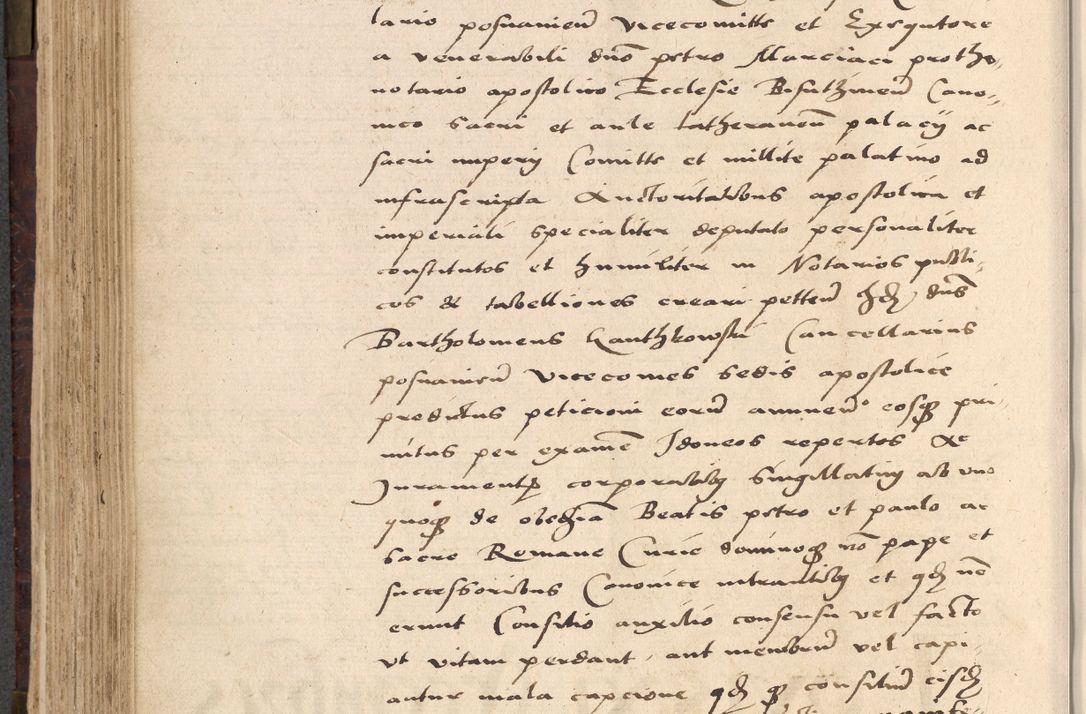 lario posnanien vicecomitte et Exequtore
a venerabili dno petro Marciaci protho,
notario apostolico Ecclesie Bisuthinen Cano,
nico Sacri et aule latheranen palacij ac
sacri imperij Comitte et millite palatino ad
infrascripta Auctoritatibus apostolica et
imperiali specialiter deputato personaliter
constitutos et humiliter in Notarios publi,
cos & tabelliones creari petten dns
Bartholomeus Kanthkowski Cancellarius
posnanien Vicecomes sedis apostolice
predictus peticioni eorum annuen eosque pri,
mitus per examen Idoneos repertos Ac
Juramentis corporalibus singillatim ab uno
quoque de obedientia Beatis petro et paulo ac
sacre Romane Curie dominoque nro pape et
successoribus Canonice intrantibus et quod non
erunt Consilio auxilio consensu vel facto
ut vitam perdant, aut membrum vel capi,
antur mala capcione quod consilium eisdem